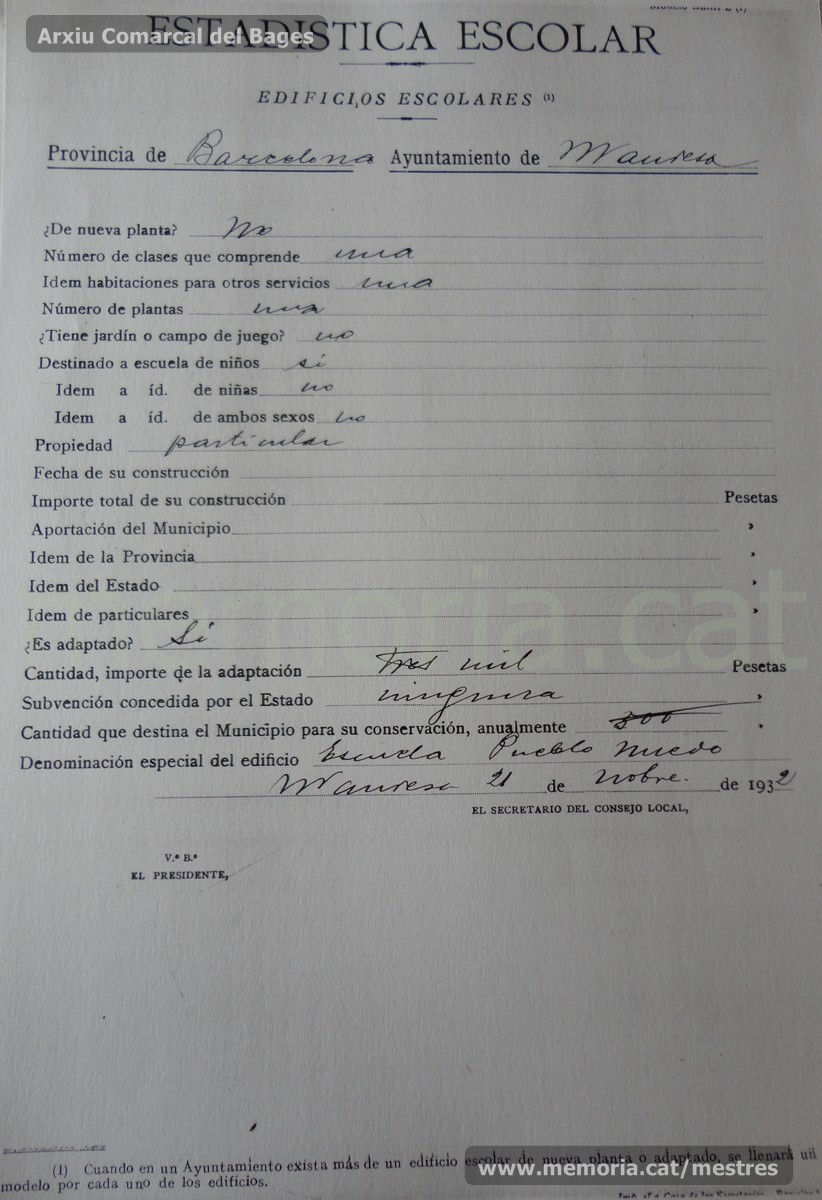 Arxiu Comarcal del Bages
ESTADISTICA ESCOLAR
EDIFICIOS ESCOLARES (1)
Provincia de Barcelona Ayuntamiento de Manresa
¿De nueva planta? No
Número de clases que comprende una
Idem habitaciones para otros servicios una
Número de plantas una
¿Tiene jardín o campo de juego? no
Destinado a escuela de niños si
Idem a íd. de niñas no
Idem a íd. de ambos sexos no
Propiedad particular
Fecha de su construcción
Importe total de su construcción Pesetas
Aportación del Municipio »
Idem de la Provincia »
Idem del Estado »
Idem de particulares »
¿Es adaptado? Si
Cantidad, importe de la adaptación tres mil Pesetas
Subvención concedida por el Estado ninguna »
Cantidad que destina el Municipio para su conservación, anualmente 300 »
Denominación especial del edificio Escuela Pueblo Nuevo
Manresa 21 de nobre. de 1932
EL SECRETARIO DEL CONSEJO LOCAL,
V.º B.º
EL PRESIDENTE,
memoria.cat
(1) Cuando en un Ayuntamiento exista más de un edificio escolar de nueva planta o adaptado, se llenará un
modelo por cada uno de los edificios.
www.memoria.cat/mestres